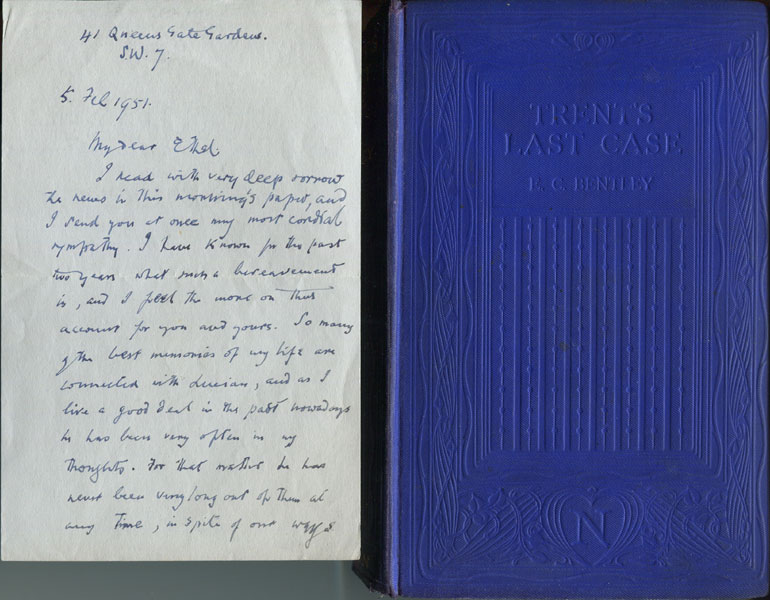 41 Queens Gate Gardens.
S.W. 7.
5. Feb 1951.
My dear Ethel.
I read with very deep sorrow
the news in this morning's paper, and
I send you at once my most cordial
sympathy. I have known for the past
two years what such a bereavement
is, and I feel the more on that
account for you and yours. So many
of the best memories of my life are
connected with Lucian, and as I
live a good deal in the past nowadays
he has been very often in my
thoughts. For that matter he has
never been very long out of them at
any time, in spite of our ways
TRENT'S
LAST CASE
E. C. BENTLEY
N